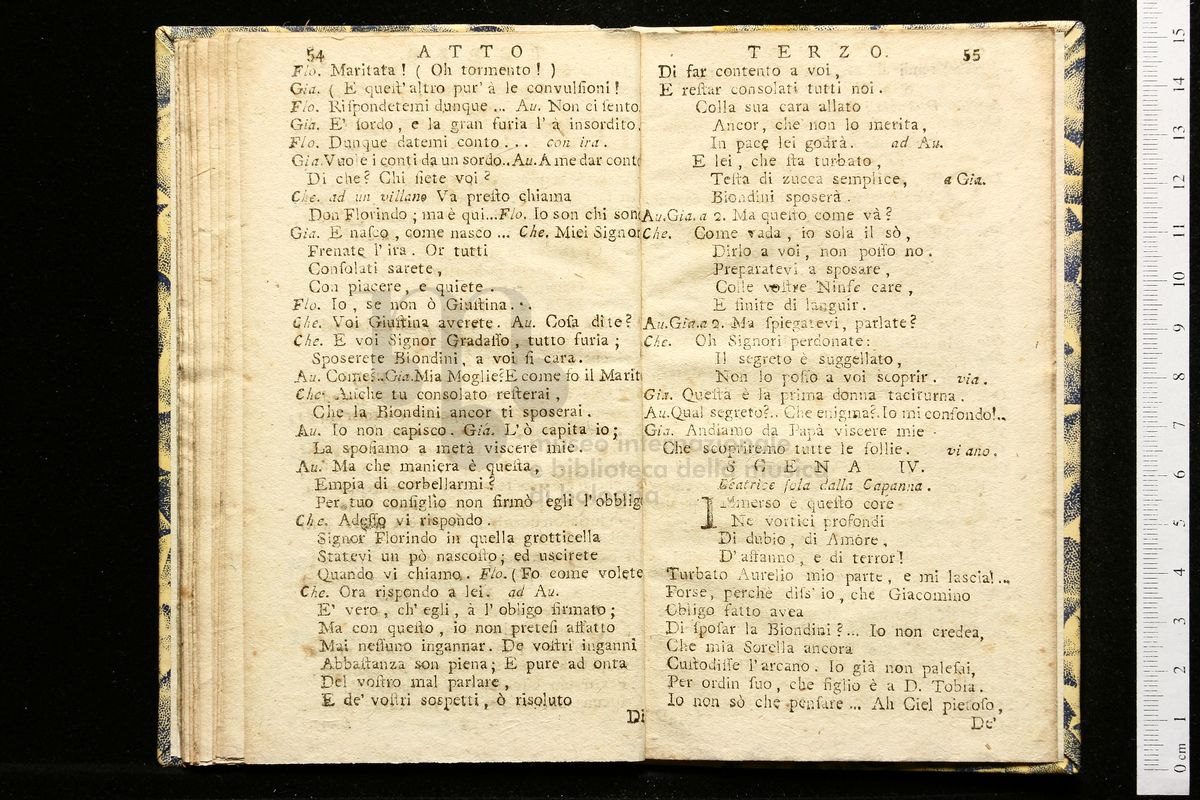 54 ATTO
Flo. Maritata! ( O tormento! )
Gia. ( E queſt' altro pur' à le convulſioni!
Flo. Riſpondetemi dunque ... Au. Non ci ſento.
Gia. E' ſordo, e la gran furia l' à inſordito.
Flo. Dunque datemi conto . . . con ira.
Gia. Vuol e i conti da un ſordo.. Au. A me dar conto
Di che? Chi ſiete voi?
Che. ad un villano Va preſto chiama
Don Florindo; ma è qui...Flo. Io son chi sono
Gia. E naſco, come naſco ... Che. Miei Signor
Frenate l' ira. Or tutti
Conſolati sarete,
Con piacere, e quiete.
Flo. Io, se non ò Giuſtina . .
Che. Voi Giuſtina averete. Au. Coſa dite?
Che. E voi Signor Gradaſſo, tutto furia;
Spoſerete Biondini, a voi ſi cara.
Au. Come?..Gia. Mia moglie? E come ſo il Marit
Che. Anche tu conſolato reſterai,
Che la Biondini ancor ti sposerai.
Au. Io non capiſco. Gia. L' ò capita io;
La spoſiamo a metà viſcere mie.
Au. Ma che maniera è queſta,
Empia di corbellarmi?
Per tuo conſiglio non firmò egli l' obbligo
Che. Adeſſo vi riſpondo.
Signor Florindo in quella grotticella
Statevi un pò naſcoſto; ed uſcirete
Quando vi chiamo. Flo. (Fo come volete
Che. Ora riſpondo a lei. ad Au.
E' vero, ch' egli à l' obligo firmato;
Ma con queſto, io non preteſi affatto
Mai neſſuno ingannar. De voſtri inganni
Abbaſtanza son piena; E pure ad onta
Del voſtro mal parlare,
E de' voſtri sospetti, ò riſoluto
Di
TERZO 55
Di far contento a voi,
E reſtar conſolati tutti noi.
Colla sua cara allato
Ancor, che non lo merita,
In pace lei godrà. ad Au.
E lei, che ſta turbato,
Teſta di zucca semplice, a Gia.
Biondini spoſerà.
Au. Gia. a 2. Ma queſto come và?
Che. Come vada, io sola il sò,
Dirlo a voi, non poſſo no.
Preparatevi a sposare,
Colle voſtre Ninfe care,
E finite di languir.
Au. Gia. a 2. Ma ſpiegatevi, parlate?
Che. Oh Signori perdonate:
Il segreto è suggellato,
Non lo poſſo a voi scoprir. via.
Gia. Queſta è la prima donna taciturna.
Au. Qual segreto?.. Che enigma?. Io mi confondo!..
Gia. Andiamo da Papà viscere mie
Che scopriremo tutte le follie. viano.
SCENA IV.
Beatrice ſola dalla Capanna.
Immerso è queſto core
Ne vortici profondi
Di dubio, di Amore,
D' affanno e di terror!
Turbato Aurelio mio parte, e mi laſcia!...
Forse, perchè diſs' io, che Giacomino
Obligo fatto avea
Di ſpoſar la Biondini?... Io non credea,
Che mia Sorella ancora
Cuſtodiſſe l' arcano. Io già non paleſai,
Per ordin ſuo, che figlio è a D. Tobia.
Io non sò che penſare ... Ah Ciel pietoſo,
De'
museo internazionale
e biblioteca della musica
di bologna
0 cm 1 2 3 4 5 6 7 8 9 10 11 12 13 14 15